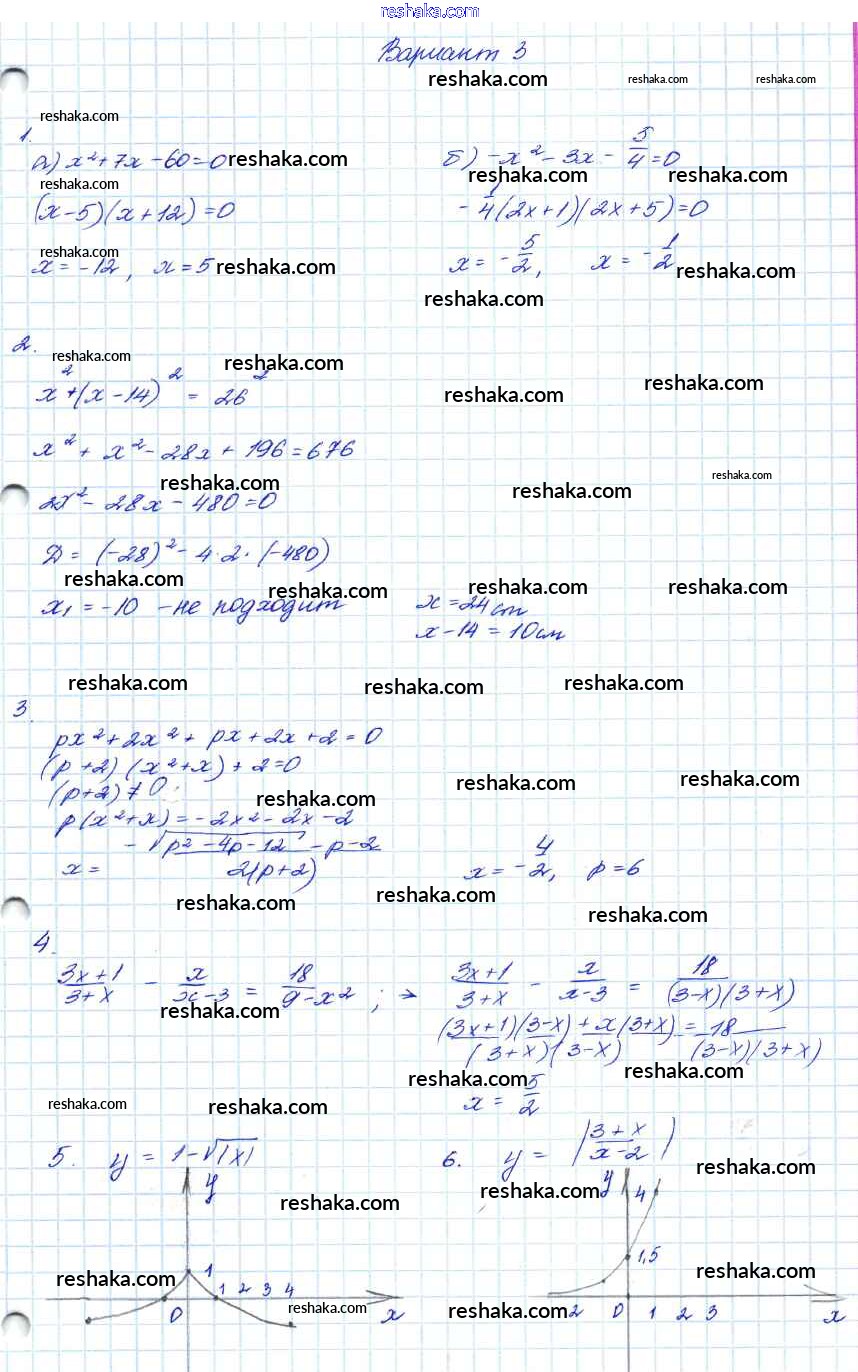 reshaka.com
Вариант 3
reshaka.com reshaka.com reshaka.com
reshaka.com
1.
а) x² + 7x - 60 = 0 reshaka.com б) -x² - 3x - 5/4 = 0
reshaka.com reshaka.com reshaka.com
(x-5)(x+12) = 0 -1/4(2x+1)(2x+5) = 0
reshaka.com
x = -12, x = 5 reshaka.com x = -5/2, x = -1/2 reshaka.com
reshaka.com
2.
reshaka.com reshaka.com
x² + (x-14)² = 26² reshaka.com reshaka.com
x² + x² - 28x + 196 = 676
reshaka.com reshaka.com reshaka.com
2x² - 28x - 480 = 0
Д = (-28)² - 4·2·(-480)
reshaka.com reshaka.com reshaka.com reshaka.com
x₁ = -10 - не подходит x = 24 cm
x - 14 = 10 см
reshaka.com reshaka.com reshaka.com
3
px² + 2x² + px + 2x + 2 = 0
(p+2)(x²+x) + 2 = 0
(p+2) ≠ 0
reshaka.com reshaka.com reshaka.com
p(x²+x) = -2x² - 2x - 2
x = (-√(p² - 4p - 12) - p - 2)/(2(p+2)) x = -4/2, p = 6
reshaka.com reshaka.com reshaka.com
4.
(3x+1)/(3+x) - x/(x-3) = 18/(9-x²); → (3x+1)/(3+x) - x/(x-3) = 18/((3-x)(3+x))
reshaka.com
((3x+1)(3-x) + x(3+x))/((3+x)(3-x)) = 18/((3-x)(3+x))
reshaka.com reshaka.com
x = 5/2
reshaka.com reshaka.com
5. y = 1 - √|x| 6. y = |(3+x)/(x-2)|
reshaka.com
y reshaka.com reshaka.com y 4
1 1,5
reshaka.com 1 2 3 4 reshaka.com
0 reshaka.com x reshaka.com -2 0 1 2 3 reshaka.com x